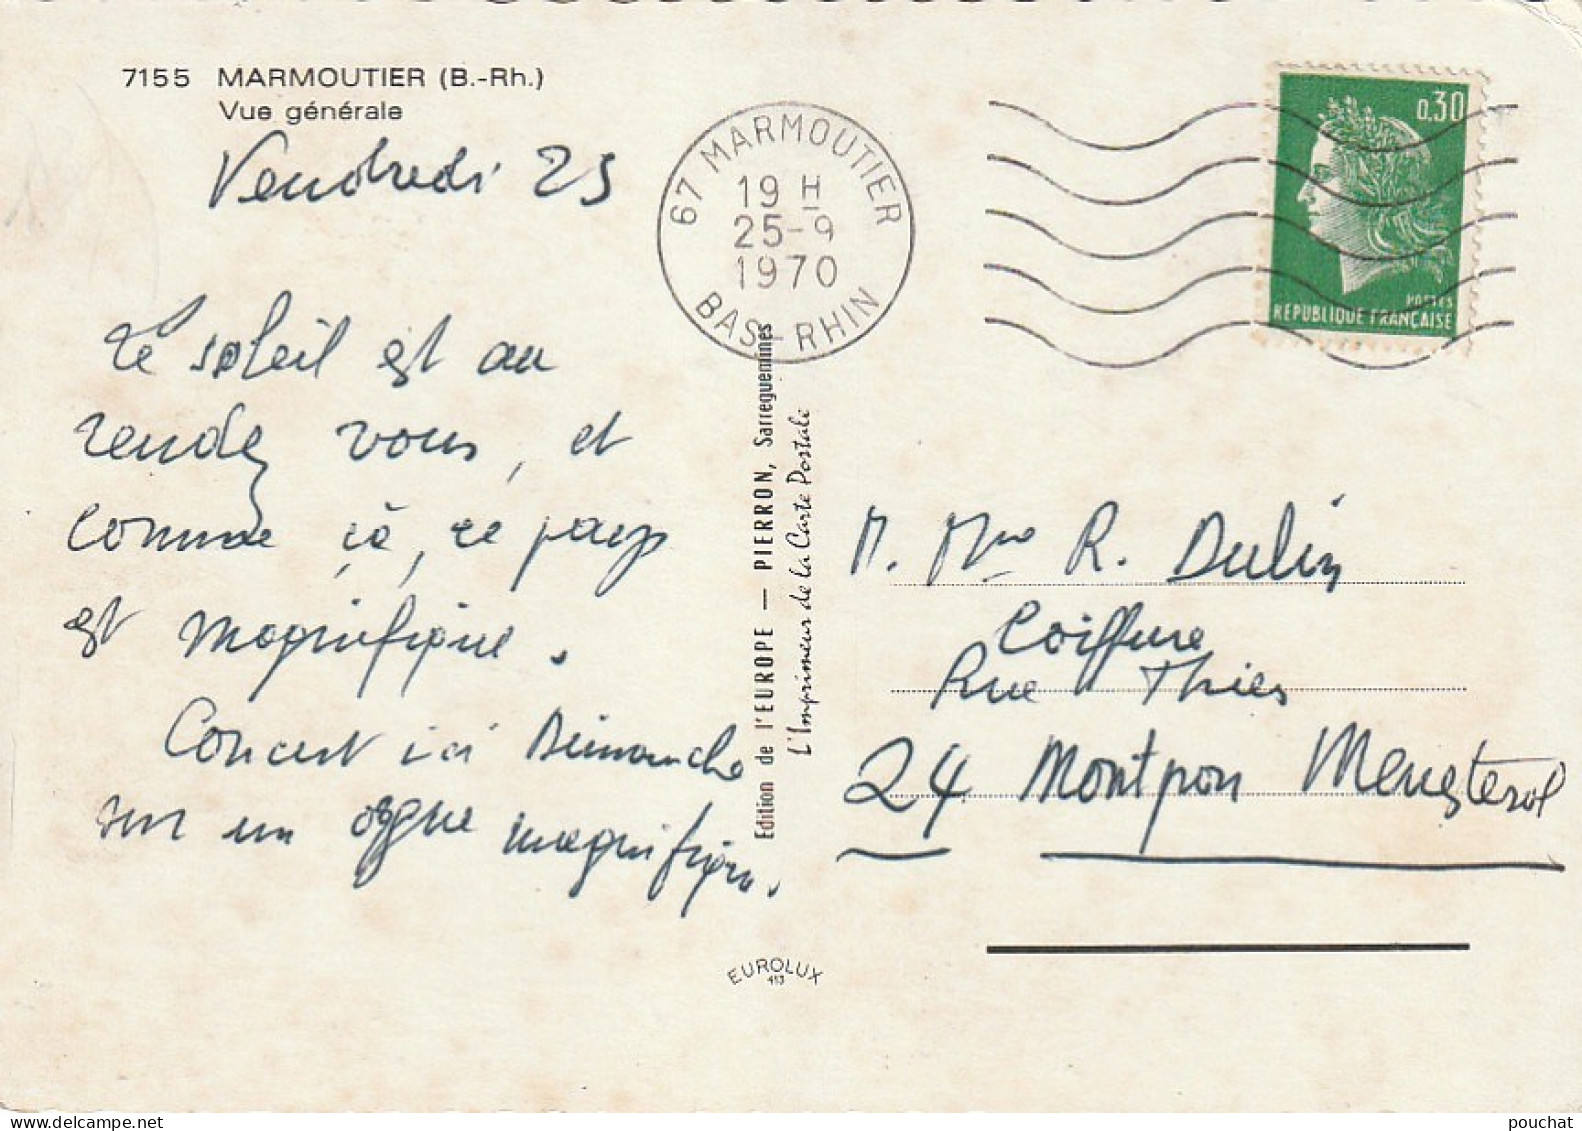 7155 MARMOUTIER (B.-Rh.)
Vue générale
Vendredi 25
Le soleil est au
rendez vous, et
comme çà, ce pays
est magnifique.
Concert ici Dimanche
sur un orgue magnifique.
67 MARMOUTIER
19 H
25-9
1970
BAS-RHIN
0,30
POSTES
RÉPUBLIQUE FRANÇAISE
Edition de l'EUROPE — PIERRON, Sarreguemines
L'Imprimeur de la Carte Postale
M. Mme R. Dulin
Coiffure
Rue Thiers
24 Montpon Menesterol
EUROLUX
413
pouchat